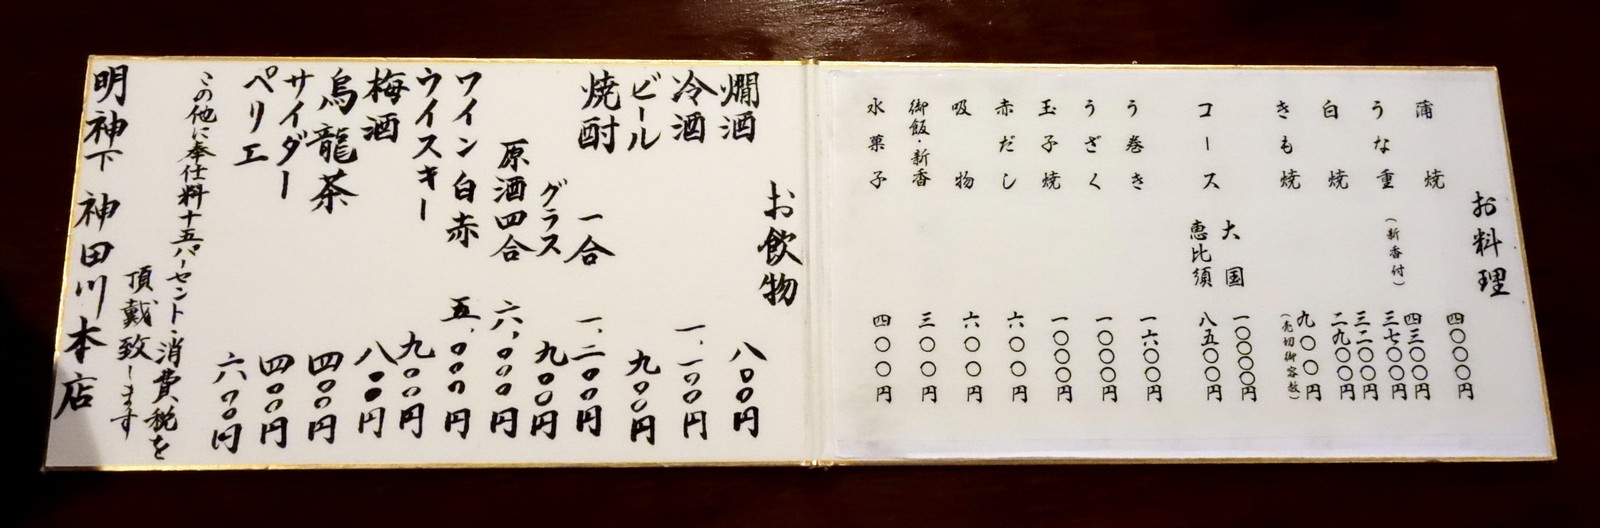 お料理
蒲焼 四〇〇〇円
うな重(新香付) 四三〇〇円
三七〇〇円
三二〇〇円
白焼 二九〇〇円
きも焼 九〇〇円
(売切御容赦)
コース 大国 一〇〇〇〇円
恵比須 八五〇〇円
う巻き 一六〇〇円
うざく 一〇〇〇円
玉子焼 一〇〇〇円
赤だし 六〇〇円
吸物 六〇〇円
御飯・新香 三〇〇円
水菓子 四〇〇円
お飲物
燗酒 八〇〇円
冷酒 一、一〇〇円
ビール 九〇〇円
焼酎 一合 一、二〇〇円
グラス 九〇〇円
原酒四合 六、〇〇〇円
ワイン白赤 五、〇〇〇円
ウイスキー 九〇〇円
梅酒 八〇〇円
烏龍茶 四〇〇円
サイダー 四〇〇円
ペリエ 六〇〇円
この他に奉仕料十五パーセント消費税を
頂戴致します
明神下 神田川本店